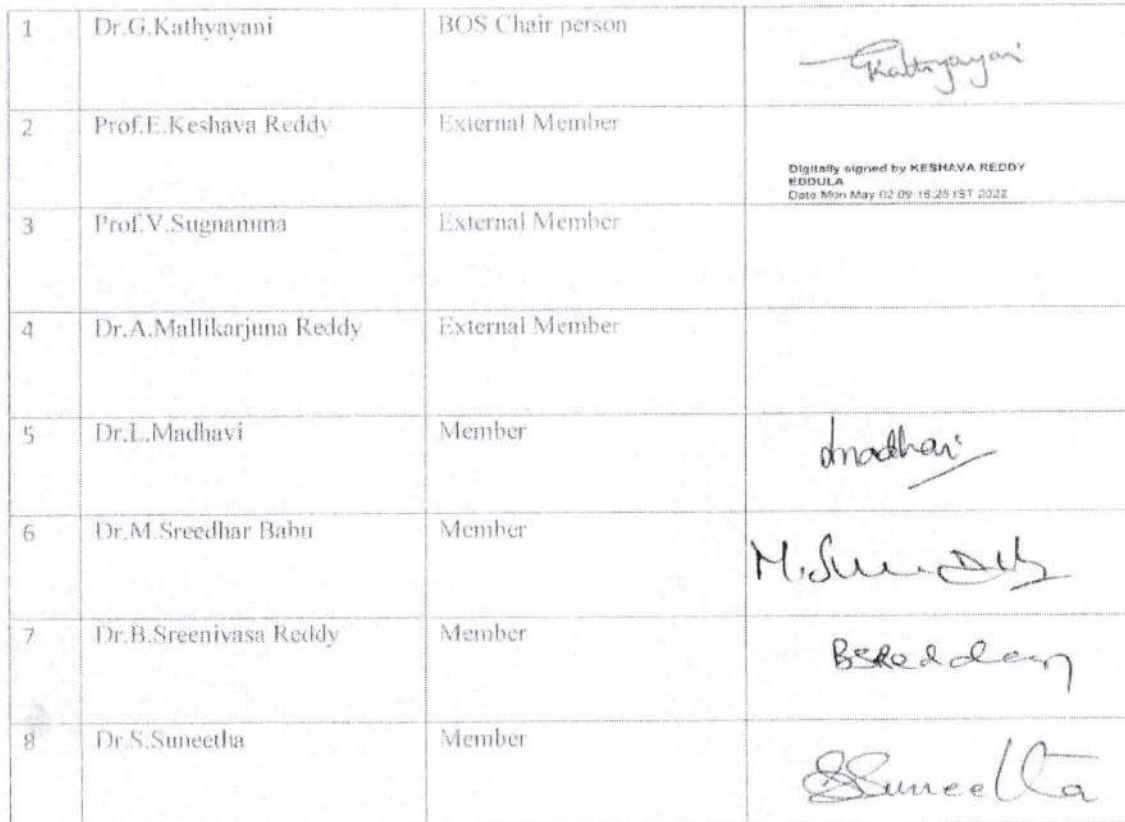 1 Dr.G.Kathyayani BOS Chair person GKathyayani
2 Prof.E.Keshava Reddy External Member
Digitally signed by KESHAVA REDDY
EDDULA
Date:Mon May 02 09:16:25 IST 2022
3 Prof.V.Sugnamma External Member
4 Dr.A.Mallikarjuna Reddy External Member
5 Dr.L.Madhavi Member
6 Dr.M.Sreedhar Babu Member
7 Dr.B.Sreenivasa Reddy Member BSReddy
8 Dr.S.Suneetha Member SSuneetha